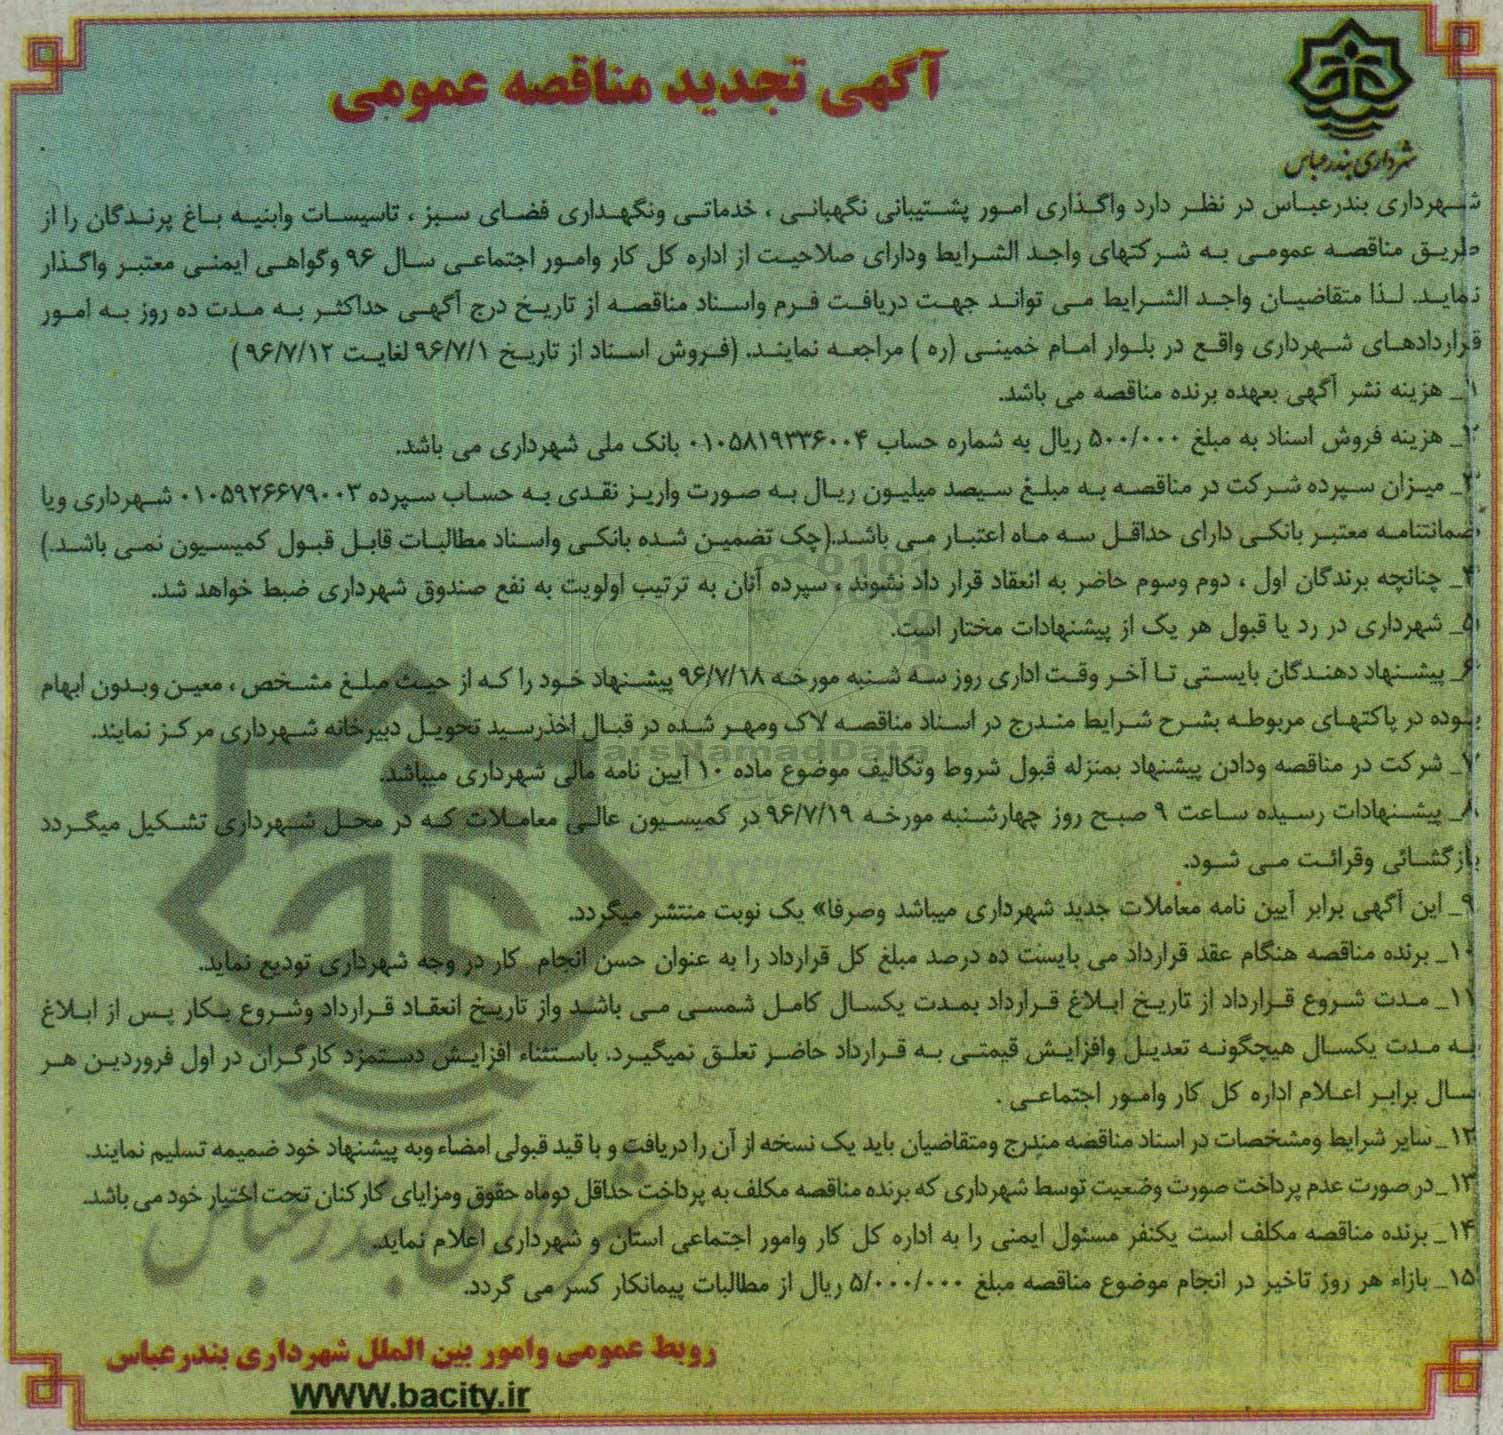 آگهی تجدید مناقصه عمومی
شهرداری بندرعباس
شهرداری بندرعباس در نظر دارد واگذاری امور پشتیبانی نگهبانی ، خدماتی ونگهداری فضای سبز ، تاسیسات وابنیه باغ پرندگان را از
طریق مناقصه عمومی به شرکتهای واجد الشرایط ودارای صلاحیت از اداره کل کار وامور اجتماعی سال ۹۶ وگواهی ایمنی معتبر واگذار
نماید. لذا متقاضیان واجد الشرایط می تواند جهت دریافت فرم واسناد مناقصه از تاریخ درج آگهی حداکثر به مدت ده روز به امور
قراردادهای شهرداری واقع در بلوار امام خمینی (ره ) مراجعه نمایند. (فروش اسناد از تاریخ ۹۶/۷/۱ لغایت ۹۶/۷/۱۲ )
۱_ هزینه نشر آگهی بعهده برنده مناقصه می باشد.
۲_ هزینه فروش اسناد به مبلغ ۵۰۰/۰۰۰ ریال به شماره حساب ۰۱۰۵۸۱۹۳۳۶۰۰۴ بانک ملی شهرداری می باشد.
۳_ میزان سپرده شرکت در مناقصه به مبلغ سیصد میلیون ریال به صورت واریز نقدی به حساب سپرده ۰۱۰۵۹۲۶۶۷۹۰۰۳ شهرداری ویا
ضمانتنامه معتبر بانکی دارای حداقل سه ماه اعتبار می باشد.(چک تضمین شده بانکی واسناد مطالبات قابل قبول کمیسیون نمی باشد.)
۴_ چنانچه برندگان اول ، دوم وسوم حاضر به انعقاد قرار داد نشوند ، سپرده آنان به ترتیب اولویت به نفع صندوق شهرداری ضبط خواهد شد.
۵_ شهرداری در رد یا قبول هر یک از پیشنهادات مختار است.
۶_ پیشنهاد دهندگان بایستی تا آخر وقت اداری روز سه شنبه مورخه ۹۶/۷/۱۸ پیشنهاد خود را که از حیث مبلغ مشخص ، معین وبدون ابهام
بوده در پاکتهای مربوطه بشرح شرایط مندرج در اسناد مناقصه لاک ومهر شده در قبال اخذرسید تحویل دبیرخانه شهرداری مرکز نمایند.
۷_ شرکت در مناقصه ودادن پیشنهاد بمنزله قبول شروط وتکالیف موضوع ماده ۱۰ آیین نامه مالی شهرداری میباشد.
۸_ پیشنهادات رسیده ساعت ۹ صبح روز چهارشنبه مورخه ۹۶/۷/۱۹ در کمیسیون عالی معاملات که در محل شهرداری تشکیل میگردد
بازگشائی وقرائت می شود.
۹_ این آگهی برابر آیین نامه معاملات جدید شهرداری میباشد وصرفا» یک نوبت منتشر میگردد.
۱۰_ برنده مناقصه هنگام عقد قرارداد می بایست ده درصد مبلغ کل قرارداد را به عنوان حسن انجام کار در وجه شهرداری تودیع نماید.
۱۱_ مدت شروع قرارداد از تاریخ ابلاغ قرارداد بمدت یکسال کامل شمسی می باشد واز تاریخ انعقاد قرارداد وشروع بکار پس از ابلاغ
به مدت یکسال هیچگونه تعدیل وافزایش قیمتی به قرارداد حاضر تعلق نمیگیرد. باستثناء افزایش دستمزد کارگران در اول فروردین هر
سال برابر اعلام اداره کل کار وامور اجتماعی .
۱۲_ سایر شرایط ومشخصات در اسناد مناقصه مندرج ومتقاضیان باید یک نسخه از آن را دریافت و با قید قبولی امضاء وبه پیشنهاد خود ضمیمه تسلیم نمایند.
۱۳_ در صورت عدم پرداخت صورت وضعیت توسط شهرداری که برنده مناقصه مکلف به پرداخت حداقل دوماه حقوق ومزایای کارکنان تحت اختیار خود می باشد.
۱۴_ برنده مناقصه مکلف است یکنفر مسئول ایمنی را به اداره کل کار وامور اجتماعی استان و شهرداری اعلام نماید.
۱۵_ بازاء هر روز تاخیر در انجام موضوع مناقصه مبلغ ۵/۰۰۰/۰۰۰ ریال از مطالبات پیمانکار کسر می گردد.
روبط عمومی وامور بین الملل شهرداری بندرعباس
WWW.bacity.ir
ParsNamadData
شهرداری بندرعباس